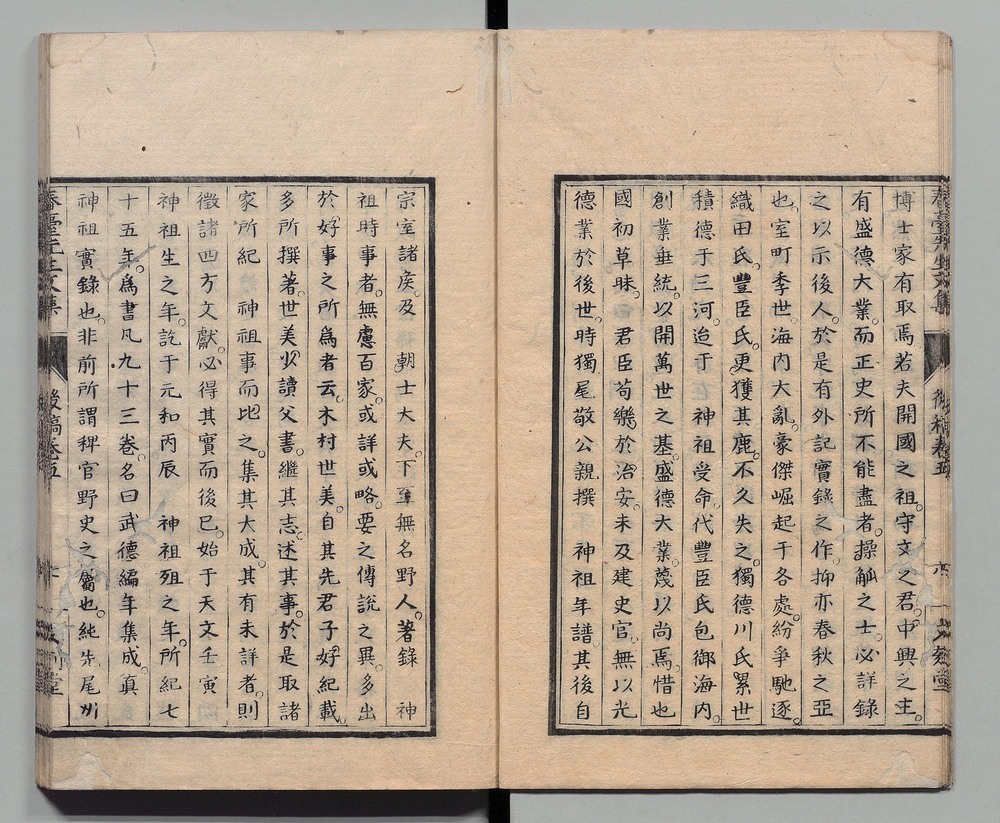 博士家有取焉若夫開國之祖。守文之君。中興之主。
有盛德大業。而正史所不能盡者。操觚之士。必詳錄
之以示後人。於是有外記實錄之作。抑亦春秋之亞
也。室町季世。海內大亂。豪傑崛起于各處。紛爭馳逐。
織田氏。豐臣氏。更獲其鹿。不久失之。獨德川氏累世
積德于三河。迨于 神祖受命。代豐臣氏包御海內。
創業垂統。以開萬世之基。盛德大業。蔑以尚焉。惜也
國初草昧。 君臣苟樂於治安。未及建史官。無以光
德業於後世。時獨尾敬公親撰 神祖年譜。其後自
宗室諸侯。及 朝士大夫。下至無名野人。著錄 神
祖時事者。無慮百家。或詳或略。要之傳說之異。多出
於好事之所爲者云。木村世美。自其先君子好紀載。
多所撰著。世美以讀父書。繼其志。述其事。於是取諸
家所紀 神祖事而比之。集其大成。其有未詳者。則
徵諸四方文獻。必得其實而後已。始于天文壬寅
神祖生之年。訖于元和丙辰 神祖殂之年。所紀七
十五年。爲書凡九十三卷。名曰武德編年集成。眞
神祖實錄也。非前所謂稗官野史之屬也。純先尾州
春臺先生文集
後稿卷五